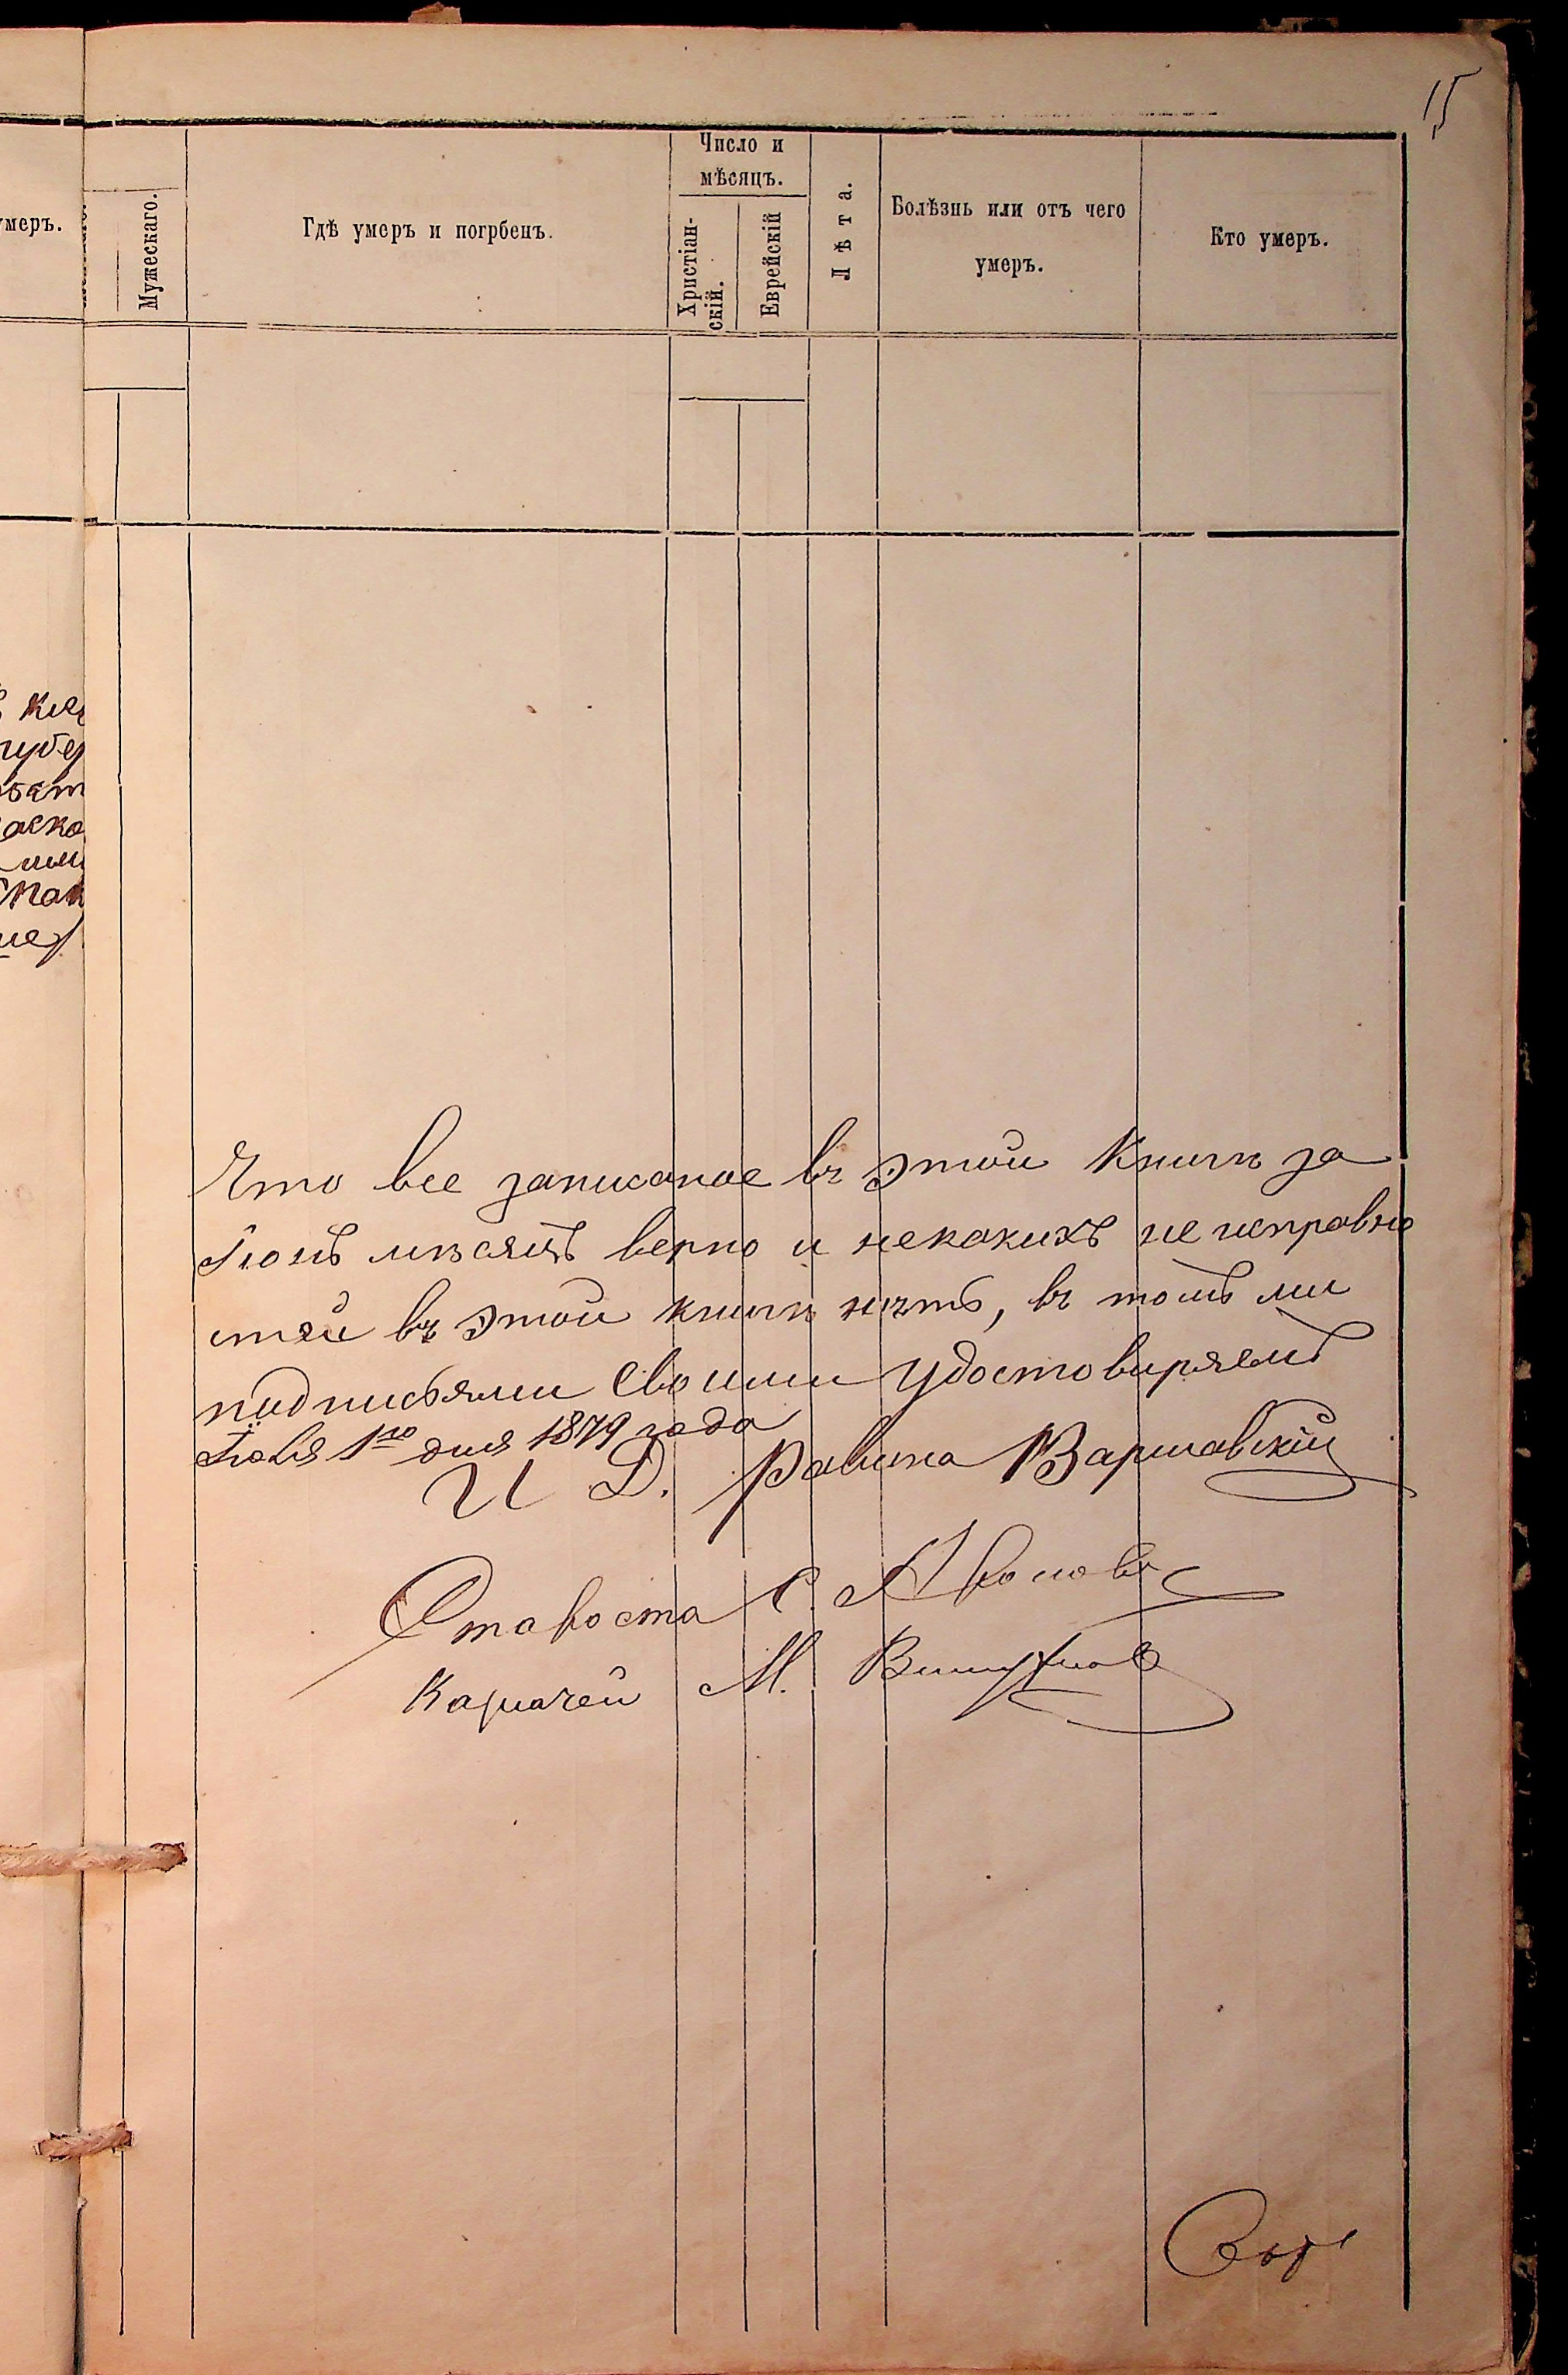 15
умеръ.
Мужескаго.
Гдѣ умеръ и погрбенъ.
Число и
мѣсяцъ.
Христіан-
скій.
Еврейскій
Лѣта.
Болѣзнь или отъ чего
умеръ.
Кто умеръ.
Что все записаное въ этой Книгѣ за
Іюнь мѣсяцъ верно и некакихъ не исправно
стей въ этой книгѣ нѣтъ, въ томъ ми
подписями своими удостовиряемъ
Іюля 1го дня 1879 года
И Д. Равина Варшавскій
Староста С.
Казначей М.